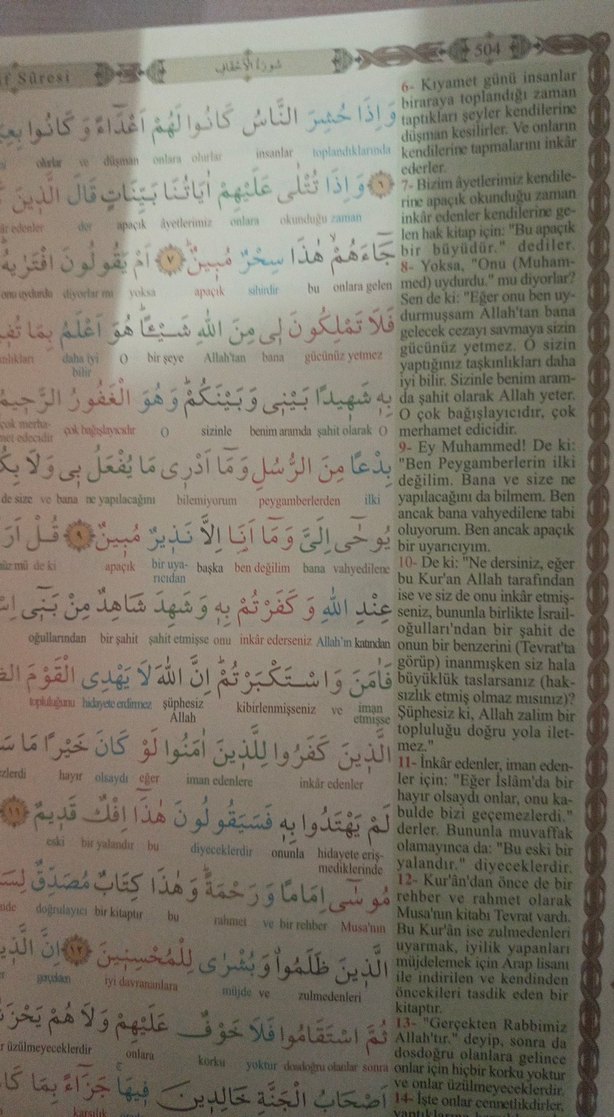 Sûresi سُورَةُ الْاَحْقَافِ 504
وَاِذَا حُشِرَ النَّاسُ كَانُوا لَهُمْ اَعْدَٓاءً وَكَانُوا
olurlar ve düşman onlara olurlar insanlar toplandıklarında
٦ وَاِذَا تُتْلٰى عَلَيْهِمْ اٰيَاتُنَا بَيِّنَاتٍ قَالَ الَّذ۪ينَ
edenler der apaçık âyetlerimiz onlara okunduğu zaman
جَٓاءَهُمْ هٰذَا سِحْرٌ مُب۪ينٌ ٧ اَمْ يَقُولُونَ افْتَرٰيهُ
onu uydurdu diyorlar mı yoksa apaçık sihirdir bu onlara gelen
فَلَا تَمْلِكُونَ ل۪ي مِنَ اللّٰهِ شَيْـًٔا هُوَ اَعْلَمُ بِمَا
daha iyi bilir O bir şeye Allah'tan bana gücünüz yetmez
بِه۪ شَه۪يدًا بَيْن۪ي وَبَيْنَكُمْ وَهُوَ الْغَفُورُ الرَّح۪يمُ
çok merha-
met edecidir çok bağışlayıcıdır O sizinle benim aramda şahit olarak O
بِدْعًا مِنَ الرُّسُلِ وَمَٓا اَدْر۪ي مَا يُفْعَلُ ب۪ي وَلَا
de size ve bana ne yapılacağını bilemiyorum peygamberlerden ilki
يُوحٰٓى اِلَيَّ وَمَٓا اَنَا اِلَّا نَذ۪يرٌ مُب۪ينٌ ٩ قُلْ
mü de ki apaçık bir uya-
rıcıdan başka ben değilim bana vahyedilene
عِنْدِ اللّٰهِ وَكَفَرْتُمْ بِه۪ وَشَهِدَ شَاهِدٌ مِنْ بَن۪ٓي
oğullarından bir şahit şahit etmişse onu inkâr ederseniz Allah'ın katından
فَاٰمَنَ وَاسْتَكْبَرْتُمْ اِنَّ اللّٰهَ لَا يَهْدِي الْقَوْمَ
topluluğunu hidayete erdirmez şüphesiz
Allah kibirlenmişseniz ve iman
etmişse
الَّذ۪ينَ كَفَرُوا لِلَّذ۪ينَ اٰمَنُوا لَوْ كَانَ خَيْرًا مَا
hayır olsaydı eğer iman edenlere inkâr edenler
لَمْ يَهْتَدُوا بِه۪ فَسَيَقُولُونَ هٰذَٓا اِفْكٌ قَد۪يمٌ ١١
eski bir yalandır bu diyeceklerdir onunla hidayete eriş-
mediklerinde
مُوسٰٓى اِمَامًا وَرَحْمَةً وَهٰذَا كِتَابٌ مُصَدِّقٌ
doğrulayıcı bir kitaptır bu rahmet ve bir rehber Musa'nın
الَّذ۪ينَ ظَلَمُوا وَبُشْرٰى لِلْمُحْسِن۪ينَ ١٢ اِنَّ
gerçekten iyi davrananlara müjde ve zulmedenleri
ثُمَّ اسْتَقَامُوا فَلَا خَوْفٌ عَلَيْهِمْ وَلَا هُمْ
üzülmeyeceklerdir onlara korku yoktur dosdoğru olanlar sonra
اَصْحَابُ الْجَنَّةِ خَالِد۪ينَ ف۪يهَا جَزَٓاءً بِمَا
karşılık
6- Kıyamet günü insanlar
biraraya toplandığı zaman
taptıkları şeyler kendilerine
düşman kesilirler. Ve onların
kendilerine tapmalarını inkâr
ederler.
7- Bizim âyetlerimiz kendile-
rine apaçık okunduğu zaman
inkâr edenler kendilerine ge-
len hak kitap için: "Bu apaçık
bir büyüdür." dediler.
8- Yoksa, "Onu (Muham-
med) uydurdu." mu diyorlar?
Sen de ki: "Eğer onu ben uy-
durmuşsam Allah'tan bana
gelecek cezayı savmaya sizin
gücünüz yetmez. O sizin
yaptığınız taşkınlıkları daha
iyi bilir. Sizinle benim aram-
da şahit olarak Allah yeter.
O çok bağışlayıcıdır, çok
merhamet edicidir.
9- Ey Muhammed! De ki:
"Ben Peygamberlerin ilki
değilim. Bana ve size ne
yapılacağını da bilmem. Ben
ancak bana vahyedilene tabi
oluyorum. Ben ancak apaçık
bir uyarıcıyım.
10- De ki: "Ne dersiniz, eğer
bu Kur'an Allah tarafından
ise ve siz de onu inkâr etmiş-
seniz, bununla birlikte İsrail-
oğulları'ndan bir şahit de
onun bir benzerini (Tevrat'ta
görüp) inanmışken siz hala
büyüklük taslarsanız (hak-
sızlık etmiş olmaz mısınız)?
Şüphesiz ki, Allah zalim bir
topluluğu doğru yola ilet-
mez."
11- İnkâr edenler, iman eden-
ler için: "Eğer İslâm'da bir
hayır olsaydı onlar, onu ka-
bulde bizi geçemezlerdi."
derler. Bununla muvaffak
olamayınca da: "Bu eski bir
yalandır." diyeceklerdir.
12- Kur'ân'dan önce de bir
rehber ve rahmet olarak
Musa'nın kitabı Tevrat vardı.
Bu Kur'ân ise zulmedenleri
uyarmak, iyilik yapanları
müjdelemek için Arap lisanı
ile indirilen ve kendinden
öncekileri tasdik eden bir
kitaptır.
13- "Gerçekten Rabbimiz
Allah'tır." deyip, sonra da
dosdoğru olanlara gelince
onlar için hiçbir korku yoktur
ve onlar üzülmeyeceklerdir.
14- İşte onlar cennetliktirler.